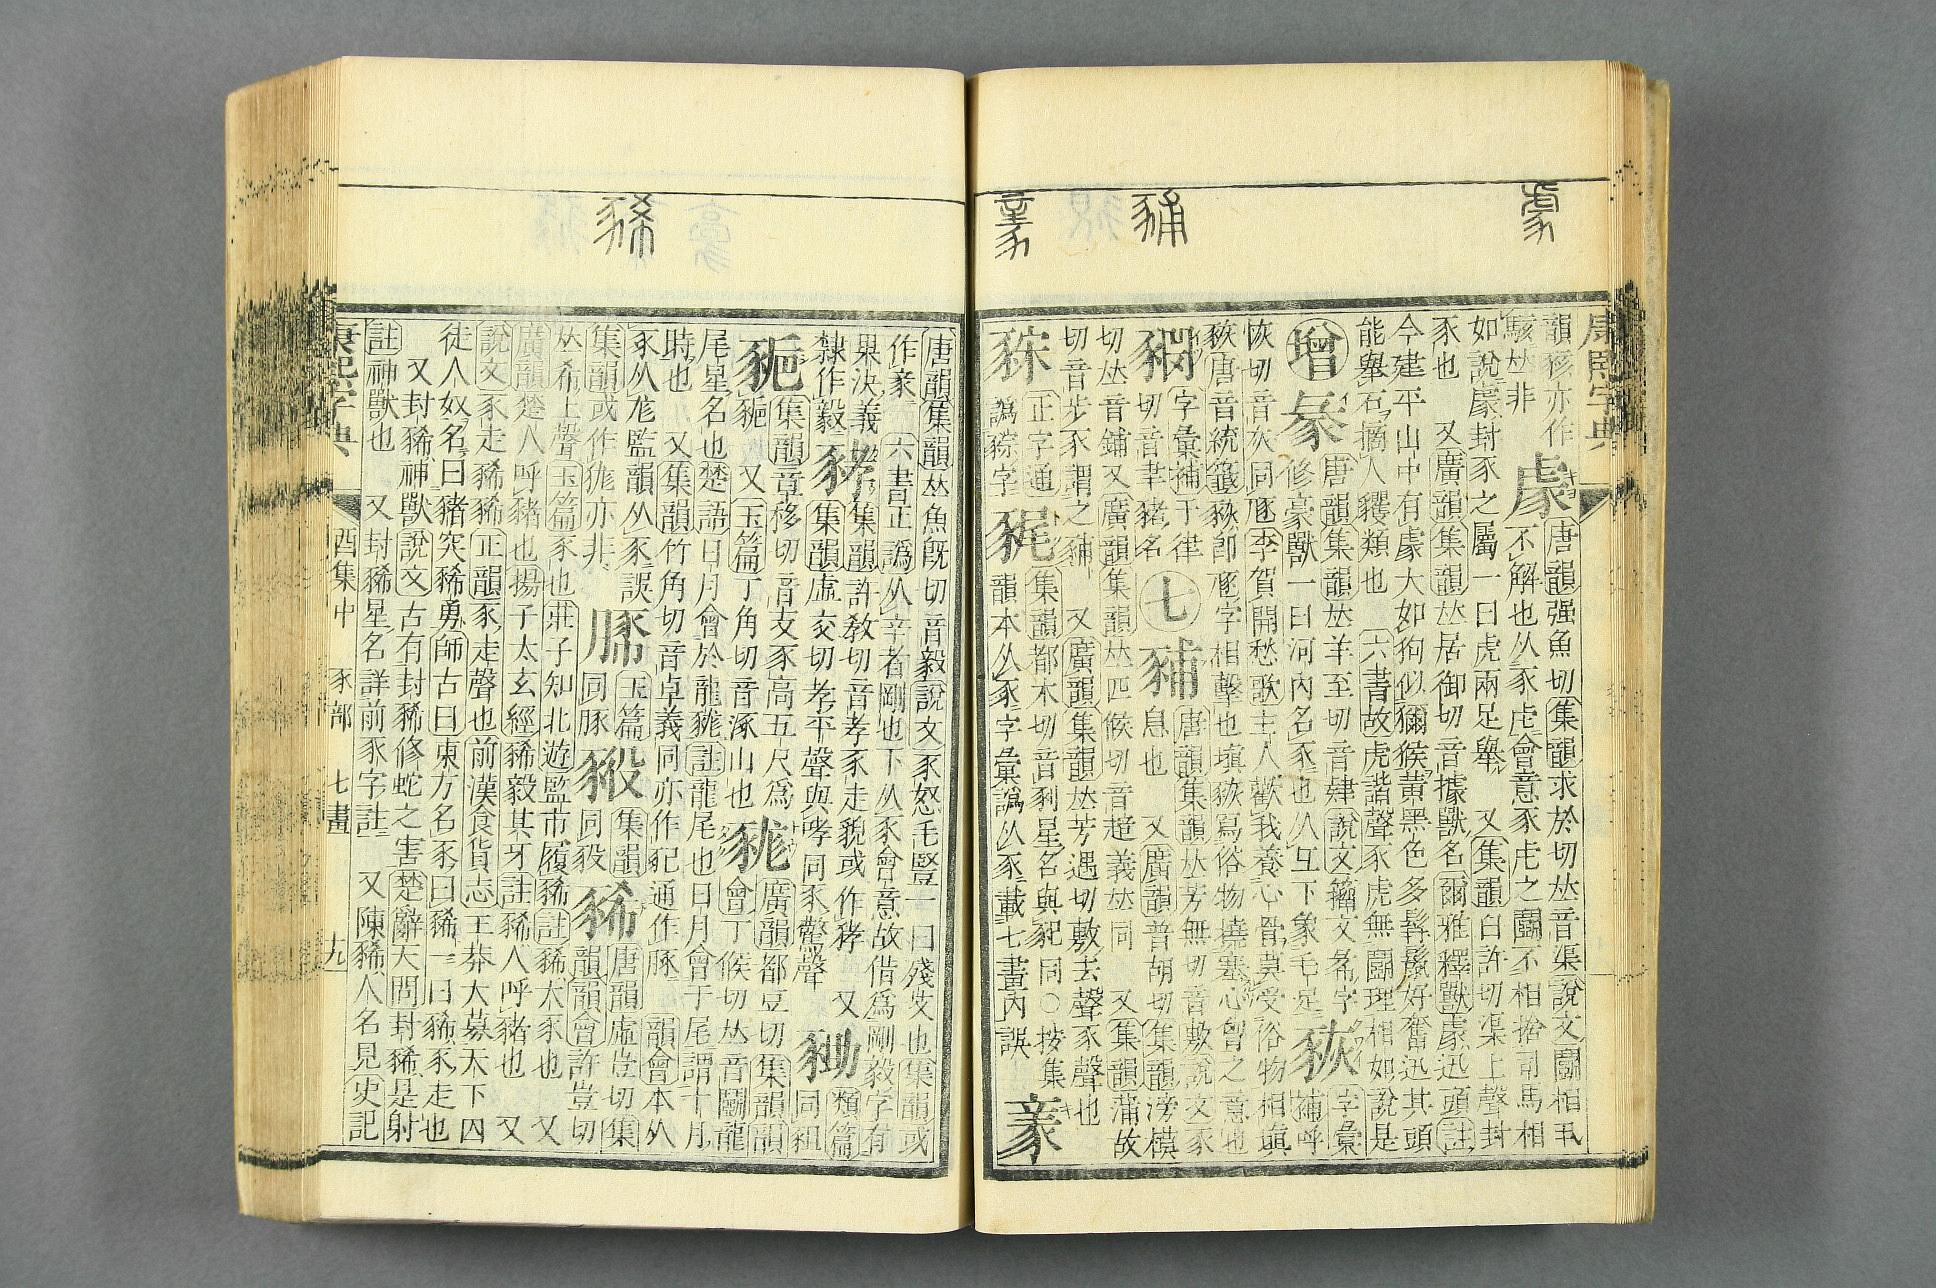 康熙字典
韻豥亦作
駭𠀤非
豦
唐韻强魚切集韻求於切𠀤音渠說文鬭相丮
不解也从豕虍會意豕虎之鬭不相捨司馬相
如說豦封豕之屬一曰虎兩足舉 又集韻臼許切渠上聲封
豕也 又廣韻集韻𠀤居御切音據獸名爾雅釋獸豦迅頭註
今建平山中有豦大如狗似獼猴黃黑色多髯鬣好奮迅其頭
能舉石擿人玃類也 六書故虎諧聲豕虎無鬭理相如說是
增
唐韻集韻𠀤羊至切音肄說文籀文㣇字
修豪獸一曰河內名豕也从彑下象毛足
字彙補呼
恢切音灰同豗李賀開愁歌主人勸我養心骨莫受俗物相塡
豥唐音統籤豥卽豗字相擊也塡豥爲俗物撓塞心胷之意也
豩
字彙補于律
切音聿豬名
七
豧
唐韻集韻𠀤芳無切音敷說文豕
息也 又廣韻普胡切集韻滂模
切𠀤音鋪又廣韻集韻𠀤匹候切音䞳義𠀤同 又集韻蒲故
切音步豕謂之豧 又廣韻集韻𠀤芳遇切敷去聲豕聲也
正字通
譌豵字
集韻都木切音剢星名與豝同〇按集
韻本从豕字彙譌从豕載七畫內誤
豙
唐韻集韻𠀤魚旣切音毅說文豕怒毛豎一曰殘艾也集韻或
作豪 六書正譌从辛者剛也下从豕會意故借爲剛毅字有
果決義
隸作毅
集韻許敎切音孝豕走貌或作豨 又
集韻虛交切孝平聲與哮同豕驚聲
類篇
同豠
集韻章移切音支豕高五尺爲
豟 又玉篇丁角切音涿山也
廣韻都豆切集韻韻
會丁候切𠀤音鬭龍
尾星名也楚語日月會於龍豵註龍尾也日月會于尾謂十月
時也 又集韻竹角切音卓義同亦作豝通作豚 韻會本从
豕从尨監韻从豕誤
集韻或作㹶亦非
玉篇
同豚
集韻
同豛
豨
唐韻虛豈切集
韻韻會許豈切
𠀤希上聲玉篇豕也莊子知北遊監市履豨註豨大豕也 又
廣韻楚人呼豬也揚子太玄經豨毅其牙註豨人呼豬也 又
說文豕走豨豨正韻豕走聲也前漢食貨志王莽大募天下囚
徒人奴名曰豬突豨勇師古曰東方名豕曰豨一曰豨豕走也
又封豨神獸說文古有封豨修蛇之害楚辭天問封豨是射
註神獸也 又封豨星名詳前豕字註 又陳豨人名見史記
康熙字典
酉集中 豕部 七畫 九